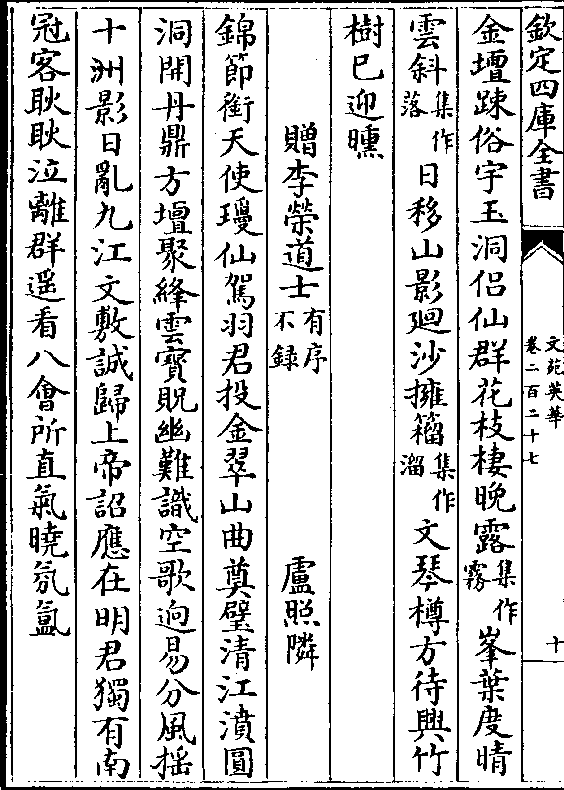 欽定四庫全書
文苑英華
卷二百二十七
十
金壇踈俗宇玉洞侣仙群花枝棲晚露集作霧峯葉度晴
雲斜集作落日移山影廻沙擁籀集作溜文琴樽方待興竹
樹已迎曛
贈李榮道士有序不録 盧照隣
錦節銜天使瓊仙駕羽君投金翠山曲奠璧清江濆圓
洞開丹鼎方壇聚絳雲寳貺幽難識空歌逈易分風揺
十洲影日亂九江文敷誠歸上帝詔應在明君獨有南
冠客耿耿泣離群遥看八會所直氣曉氛氲